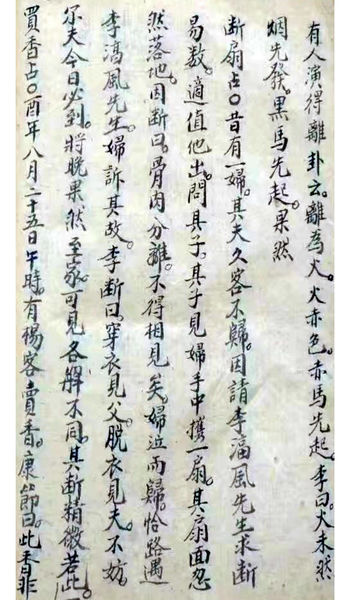 有人演得離卦云。離為火。火赤色。赤馬先起。李曰。火未然
烟先發。黑馬先起。果然
断扇占〇昔有一婦。其夫久客不歸。因請李淳風先生求断
易数。適值他出。問其子。其子見婦手中携一扇。其扇面忽
然落地。因断曰。骨肉分離。不得相見矣。婦泣而歸。恰路遇
李淳風先生。婦訴其故。李断曰。穿衣見父。脱衣見夫。不妨
尔夫今日必到。將晚果然至家。可見各解不同。其断精微若此。
買香占〇酉年八月二十五日午時。有楊客賣香。康節曰。此香非